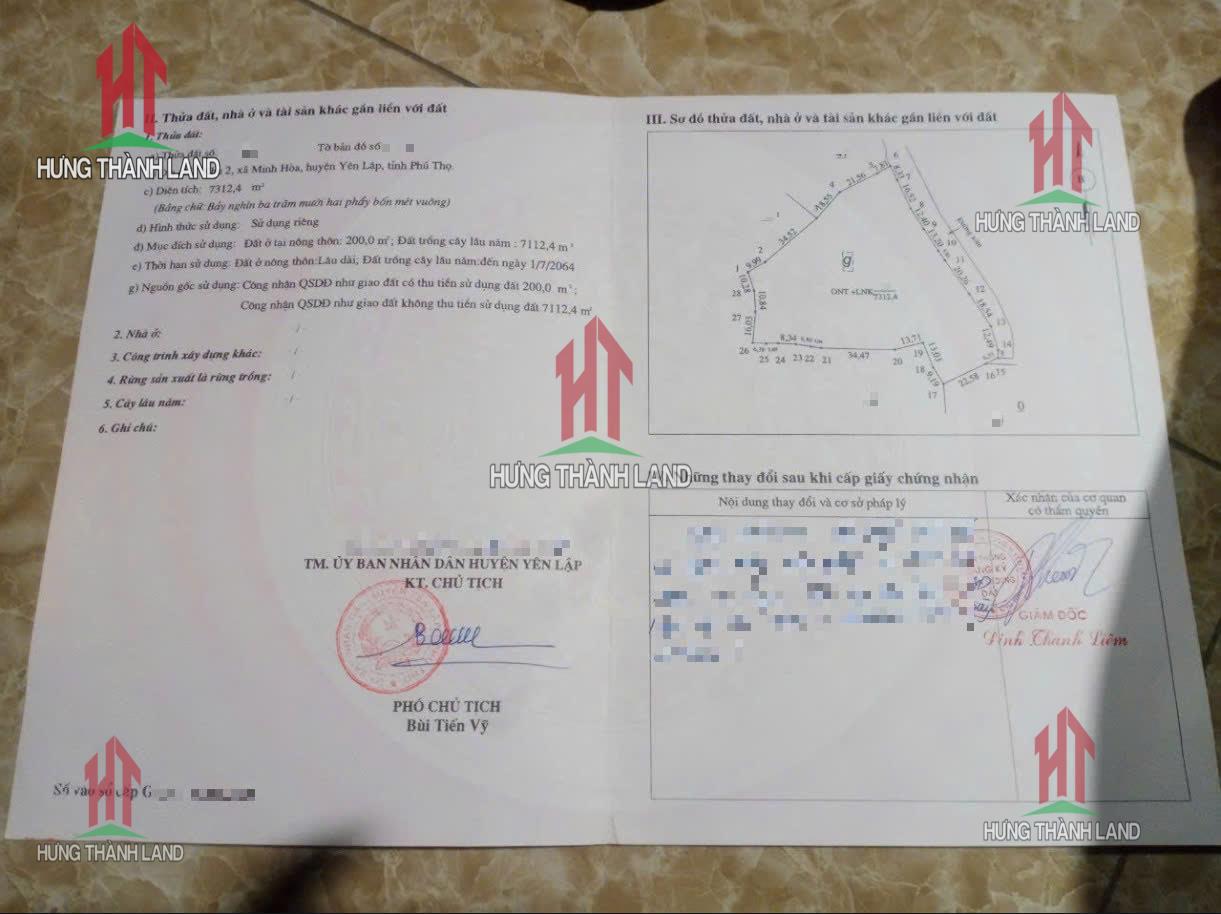 II. Thửa đất, nhà ở và tài sản khác gắn liền với đất
1. Thửa đất:
Thửa đất số Tờ bản đồ số
2, xã Minh Hòa, huyện Yên Lập, tỉnh Phú Thọ.
c) Diện tích: 7312,4 m²
(Bằng chữ: Bảy nghìn ba trăm mười hai phẩy bốn mét vuông)
d) Hình thức sử dụng: Sử dụng riêng
đ) Mục đích sử dụng: Đất ở tại nông thôn: 200,0 m²; Đất trồng cây lâu năm : 7112,4 m²
e) Thời hạn sử dụng: Đất ở nông thôn:Lâu dài; Đất trồng cây lâu năm:đến ngày 1/7/2064
g) Nguồn gốc sử dụng: Công nhận QSDĐ như giao đất có thu tiền sử dụng đất 200,0 m²;
Công nhận QSDĐ như giao đất không thu tiền sử dụng đất 7112,4 m²
2. Nhà ở: -/-
3. Công trình xây dựng khác: -/-
4. Rừng sản xuất là rừng trồng: -/-
5. Cây lâu năm: -/-
6. Ghi chú:
TM. ỦY BAN NHÂN DÂN HUYỆN YÊN LẬP
KT. CHỦ TỊCH
PHÓ CHỦ TỊCH
Bùi Tiến Vỹ
Số vào sổ cấp G
III. Sơ đồ thửa đất, nhà ở và tài sản khác gắn liền với đất
B
1
2
4
5
6
7
8
9
10
11
12
13
14
15
16
17
18
19
20
21
22
23
24
25
26
27
28
9,99
34,52
18,55
21,56
16,92
12,40
13,20
20,26
18,54
12,49
22,58
9,19
13,03
13,71
34,47
8,34
16,03
10,84
10,28
ONT +LNK
7312,4
Những thay đổi sau khi cấp giấy chứng nhận
Nội dung thay đổi và cơ sở pháp lý
Xác nhận của cơ quan
có thẩm quyền
GIÁM ĐỐC
Đinh Thanh Liêm
HT
HƯNG THÀNH LAND
HT
HƯNG THÀNH LAND
HT
HƯNG THÀNH LAND
HT
HƯNG THÀNH LAND
HT
HƯNG THÀNH LAND